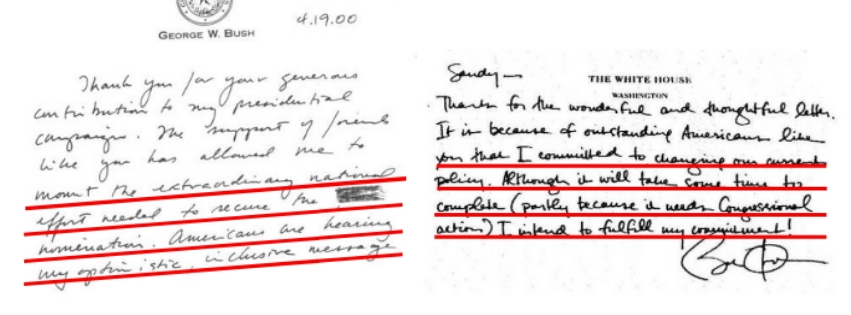 GEORGE W. BUSH
4.19.00
Thank you for your generous
contribution to my presidential
campaign. The support of friends
like you has allowed me to
mount the extraordinary national
effort needed to secure the
nomination. Americans are hearing
my optimistic, inclusive message
Sandy—
THE WHITE HOUSE
WASHINGTON
Thanks for the wonderful and thoughtful letter.
It is because of outstanding Americans like
you that I committed to changing our current
policy. Although it will take some time to
complete (partly because it needs Congressional
action) I intend to fulfill my commitment!